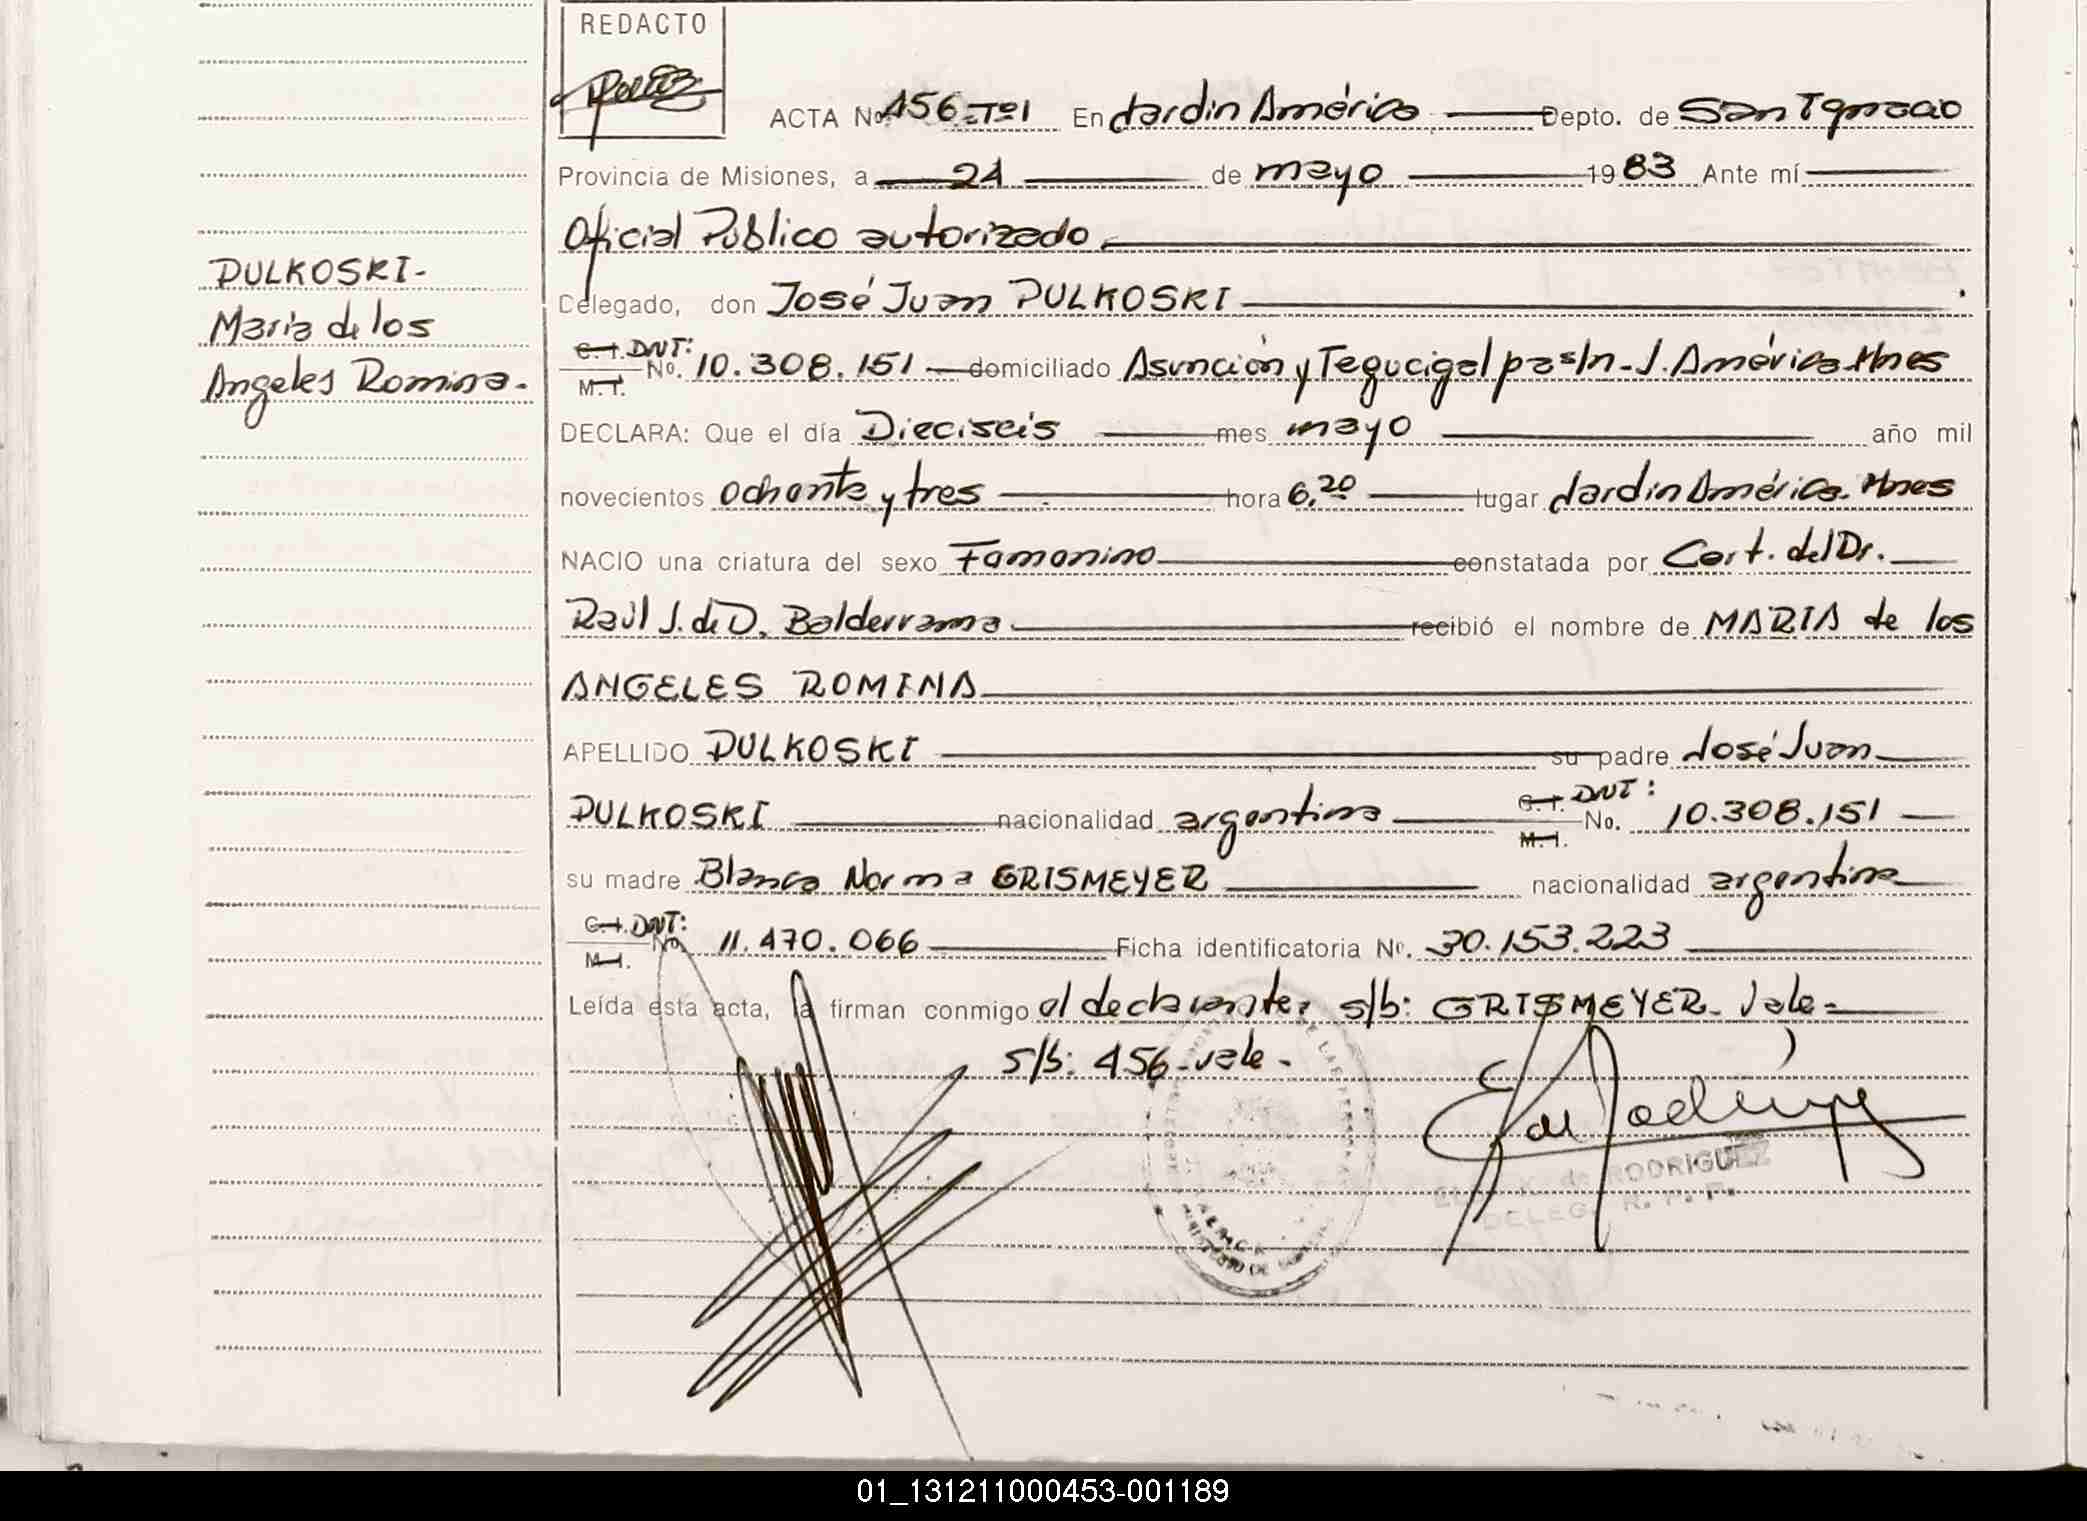 REDACTO
ACTA No. 456-Tº1 En Jardin América Depto. de San Ignacio
Provincia de Misiones, a 24 de mayo 1983 Ante mí
Oficial Público autorizado,
PULKOSKI-
Delegado, don José Juan PULKOSKI
Maria de los
C.I. DNI: M.I. No. 10.308.151 domiciliado Asunción y Tegucigalpa s/n - J. América Mnes
Angeles Romina.
DECLARA: Que el día Dieciseis mes mayo año mil
novecientos ochenta y tres hora 6,20 lugar Jardin América. Mnes
NACIO una criatura del sexo Femenino constatada por Cert. del Dr.
Raúl J. de D. Balderrama recibió el nombre de MARIA de los
ANGELES ROMINA
APELLIDO PULKOSKI su padre José Juan
PULKOSKI nacionalidad argentina C.I. DNI: M.I. No. 10.308.151
su madre Blanca Norma GRISMEYER nacionalidad argentina
C.I. DNI: M.I. No. 11.470.066 Ficha identificatoria Nº. 30.153.223
Leída esta acta, la firman conmigo el declarante, s/b: GRISMEYER. Vale=
s/b: 456-vale-
de RODRIGUEZ
DELEG. R. P. P.
01_131211000453-001189